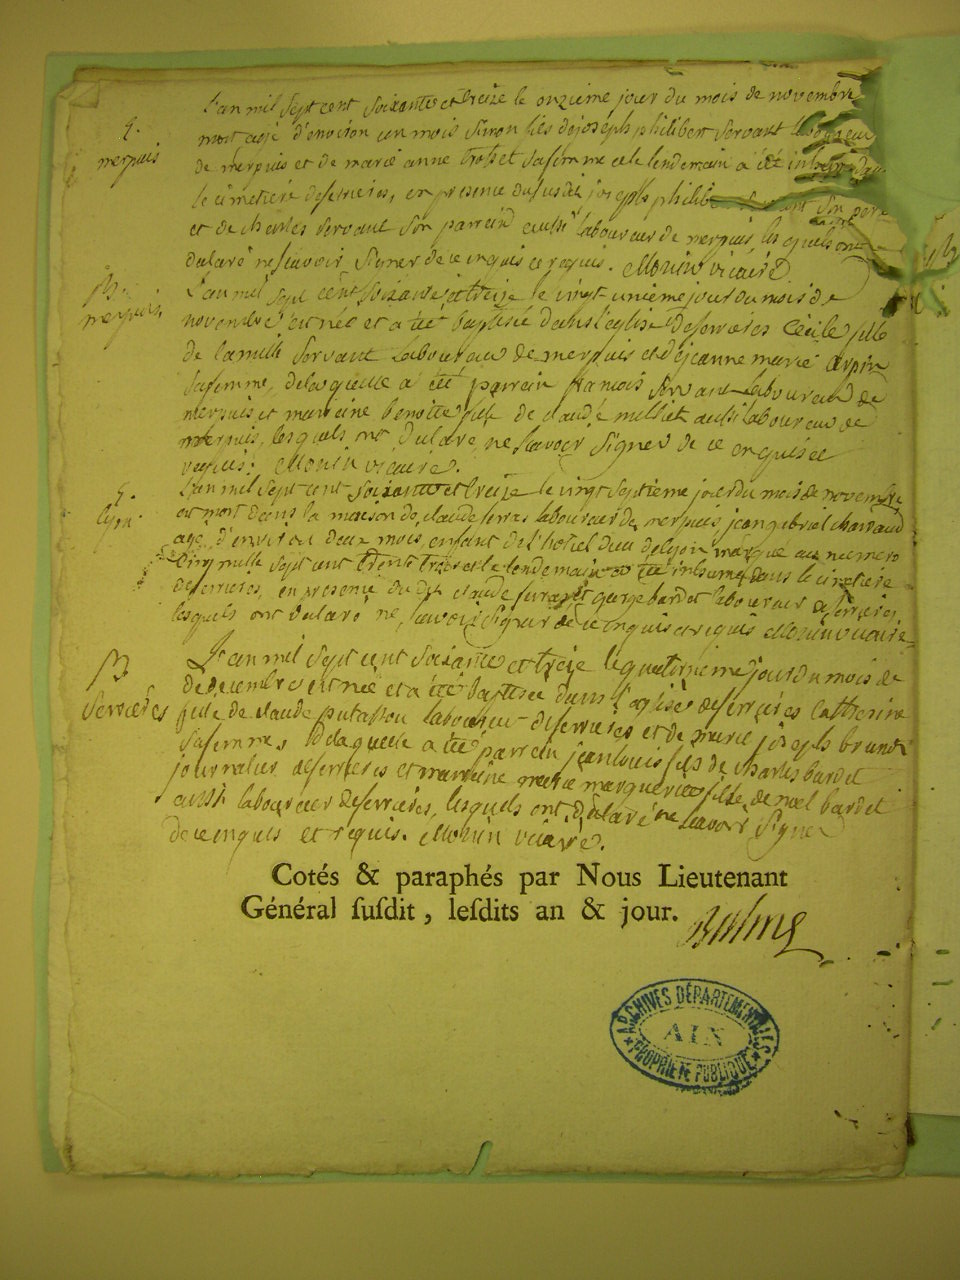 L'an mil sept cent soixante et treize le onzieme jour du mois de novembre
mort agé d'environ un mois simon fils de joseph philibert servant laboureur
merpuis
de merpuis et de marie anne trosset sa femme et le lendemain a été
le cimetiere de serrieres, en presence du susdit joseph philibert servant son pere
et de charles servant son parrein aussi laboureur de merpuis lesquels ont
declaré ne scavoir signer de ce enquis et requis. Monin vicaire
B.
merpuis
L'an mil sept cent soixante et treize le vingt unieme jour du mois de
novembre est née et a été baptisée dans l'eglise de serrieres Cécile fille
de Camille servant laboureur de merpuis et de jeanne marie arpin
sa femme, de laquelle a été parrein francois servant laboureur de
merpuis et mareine benoitte fille de claude milliet aussi laboureur de
merpuis, lesquels ont declaré ne scavoir signer de ce enquis et
requis. Monin vicaire.
lyon
L'an mil sept cent soixante et treize le vingt septieme jour du mois de novembre
est mort dans la maison de claude ferras laboureur de merpuis jean gabriel
agé d'environ deux mois, enfant de l'hotel dieu de lyon marqué au numero
cinq mille sept cent trente trois et le lendemain a été inhumé dans le cimetiere
de serrieres, en presence du dit claude ferras et george bardet laboureur de serrieres
lesquels ont declaré ne scavoir signer de ce enquis et requis Monin vicaire
B
Serrieres
L'an mil sept cent soixante et treize le quatorzieme jour du mois de
de decembre est née et a été baptisée dans l'eglise de serrieres Catherine
fille de claude putassou laboureur de serrieres et de marie joseph brunet
sa femme, de laquelle a été parrein jean louis fils de charles bardet
journalier de serrieres et marreine marie marguerite fille de noel bardet
aussi laboureur de serrieres, lesquels ont declaré ne scavoir signer
de ce enquis et requis. Monin vicaire.
Cotés & paraphés par Nous Lieutenant
Général ſuſdit, leſdits an & jour.
Balme
ARCHIVES DÉPARTEMENTALES
AIN
PROPRIÉTÉ PUBLIQUE